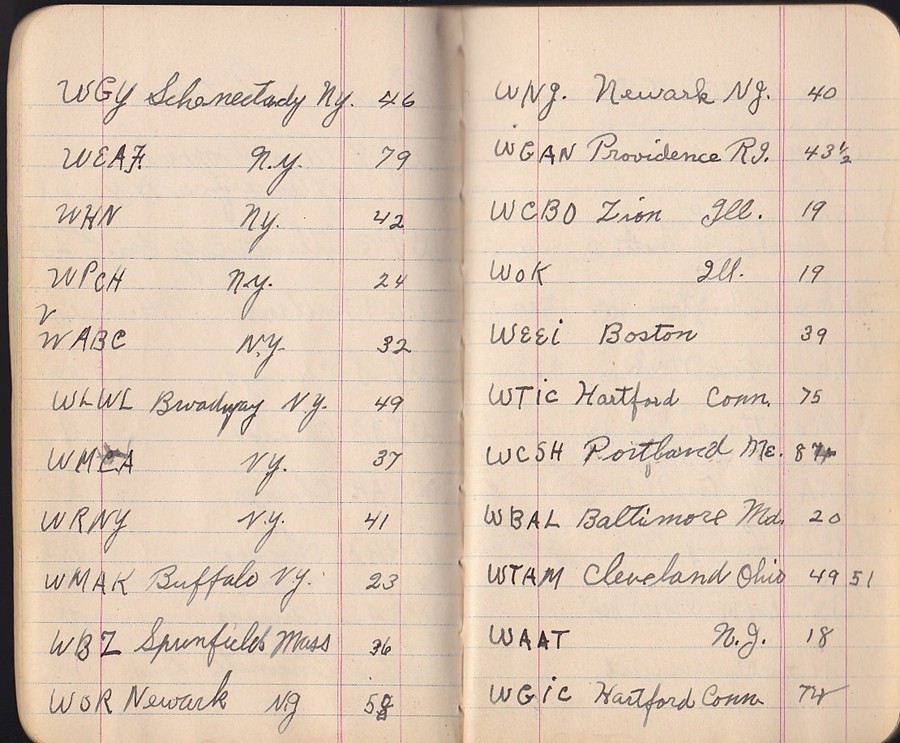 WGY Schenectady Ny. 46
WEAF. N.Y. 79
WHN Ny. 42
WPCH N.Y. 24
WABC N.Y. 32
WLWL Broadway N.Y. 49
WMCA NY. 37
WRNY N.Y. 41
WMAK Buffalo NY. 23
WBZ Sprunfields Mass 36
WOR Newark NJ
WNJ. Newark NJ. 40
WEAN Providence R.I. 43½
WCBD Zion Ill. 19
WOK Ill. 19
WEEi Boston 39
WTiC Hartford Conn. 75
WCSH Portland Me.
WBAL Baltimore Md. 20
WTAM Cleveland Ohio 49 51
WAAT N.J. 18
WGiC Hartford Conn